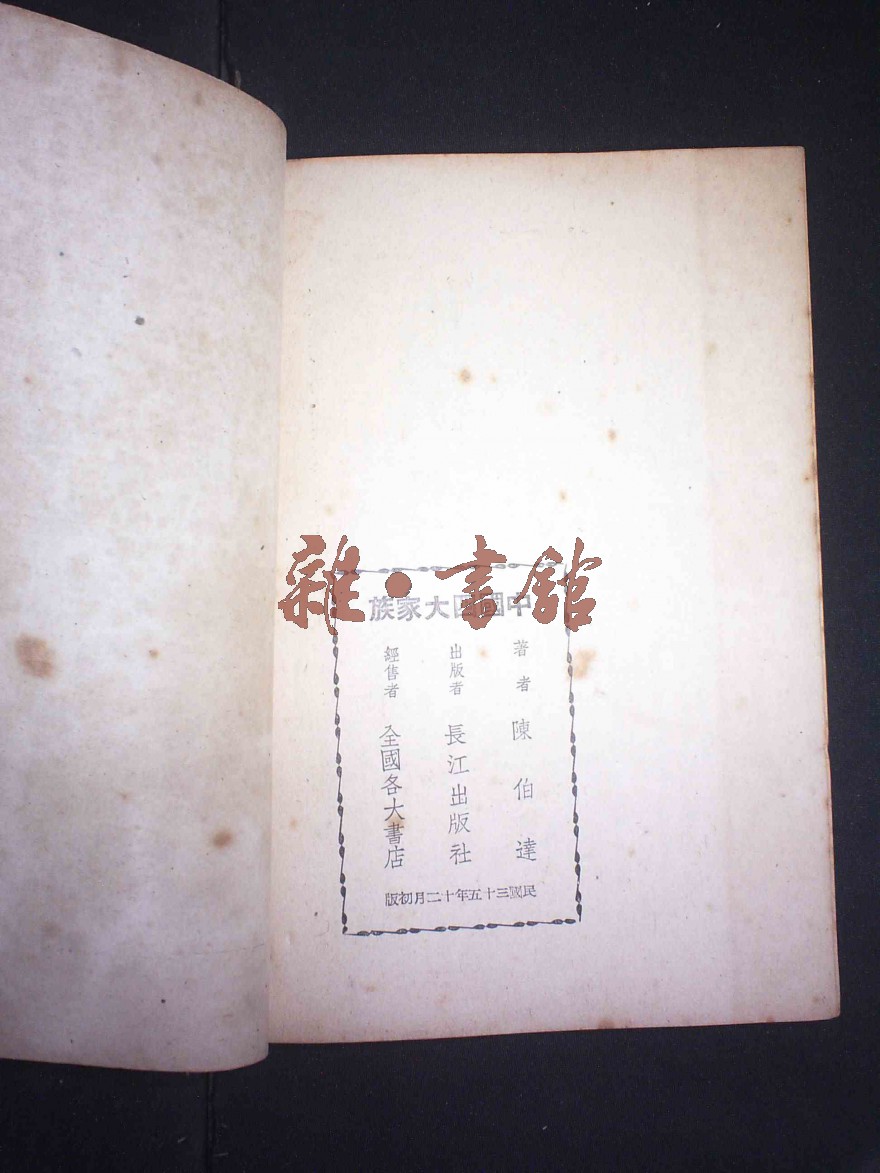 雜·書館
中國四大家族
著者 陳伯達
出版者 長江出版社
經售者 全國各大書店
民國三十五年十二月初版